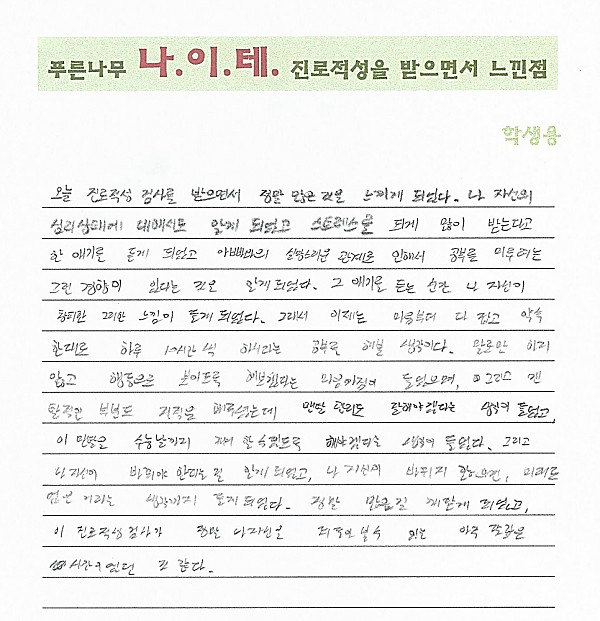 푸른나무 나.이.테. 진로적성을 받으면서 느낀점
학생용
오늘 진로적성 검사를 받으면서 정말 많은 것을 느끼게 되었다. 나 자신의
심리상태에 대해서도 알게 되었고 스트레스를 되게 많이 받는다고
한 얘기를 듣게 되었고 아빠와의 관계로 인해서 공부를 미루려는
그런 경향이 있다는 것을 알게 되었다. 그 얘기를 듣는 순간 나 자신이
그러한 느낌이 들게 되었다. 그래서 이제는 마음부터 다 잡고 약속
한대로 하루 10시간 씩 하시라는 공부를 해볼 생각이다. 말로만 하지
않고 행동으로 보이도록 해보겠다는 들었으며, 그리고 멘
부분도 지적을 해주셨는데 멘탈 관리도 잘해야겠다는 생각이 들었고,
이 멘탈을 수능날까지 해야겠다는 생각이 들었다. 그리고
나 자신이 바뀌야 한다는 걸 알게 되었고, 나 자신이 바뀌지 않으면, 미래도
없을 거라는 생각까지 들게 되었다. 정말 많은걸 깨닫게 되었고,
이 진로적성 검사가 정말 나 자신을 되돌아 볼 수 있는 아주
시간이 었던 것 같다.